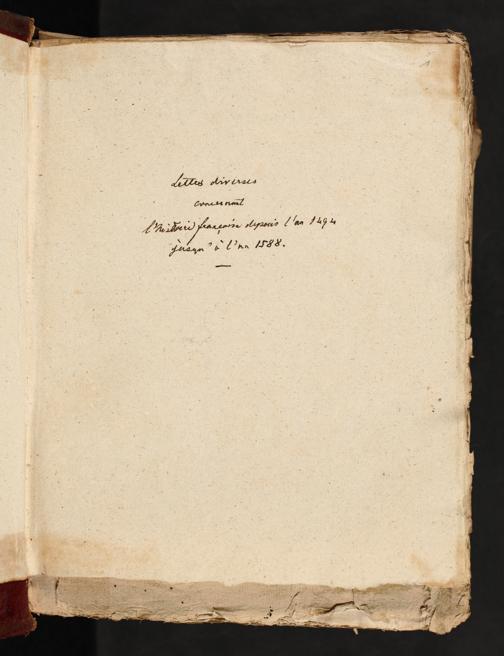 Lettres diverses
concernant
l'histoire françoise depuis l'an 1494
jusqu'à l'an 1588.